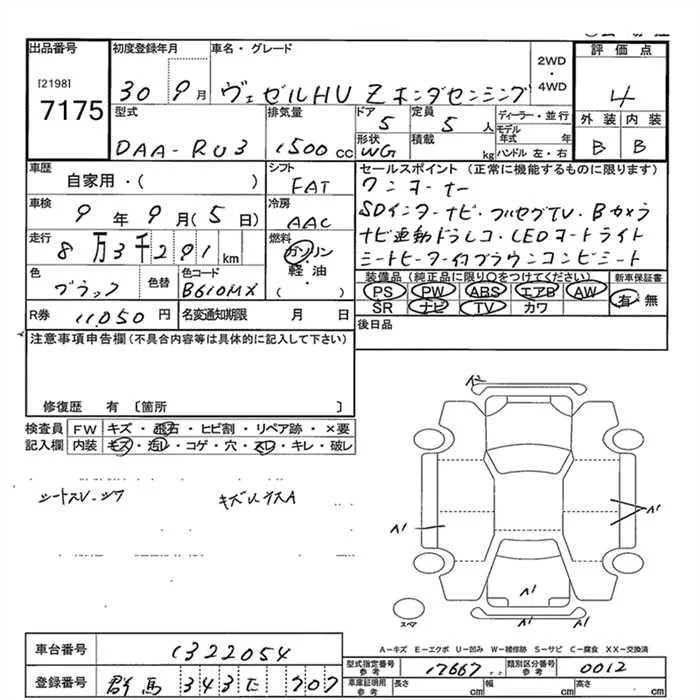 出品番号 初度登録年月 車名・グレード 2WD・4WD 評価点
[2198] 7175 30 9月 ヴェゼルHV Z ホンダセンシング 4
型式 排気量 ドア 5 定員 5 人 ディーラー・並行 外装 内装
DAA-RU3 1500 cc 形状 WG 積載 kg モデル年式 年 ハンドル 左・右 B B
車歴 自家用・( ) シフト FAT セールスポイント (正常に機能するものに限ります)
ワンオーナー
車検 9年9月(5日) 冷房 AAC SDインターナビ・フルセグTV・Bカメラ
走行 8万3千291km 燃料 ガソリン・軽油・( ) ナビ連動ドラレコ・LEDヘッドライト
シートヒーター付ブラウンコンビシート
色 ブラック 色替 色コード B610MX 装備品 (純正品に限り○をつけてください) 新車保証書
PS PW ABS エアB AW 有・無
SR ナビ TV カワ
R券 11,050円 名変通知期限 月 日 後日品
注意事項申告欄 (不具合内容等は具体的に記入して下さい)
修復歴 有 〔箇所 〕
検査員 FW キズ・飛石・ヒビ割・リペア跡・×要
記入欄 内装 キズ・汚レ・コゲ・穴・スレ・キレ・破レ
シートスレ・シワ キズ A
A1
A1
A1
A1
スペア
A-キズ E-エクボ U-凹み W-補修跡 S-サビ C-腐食 XX-交換済
車台番号 1322054 型式指定番号 参考 17667 類別区分番号 参考 0012
登録番号 群馬 343 707 車庫証明用 参考 長さ cm 幅 cm 高さ cm